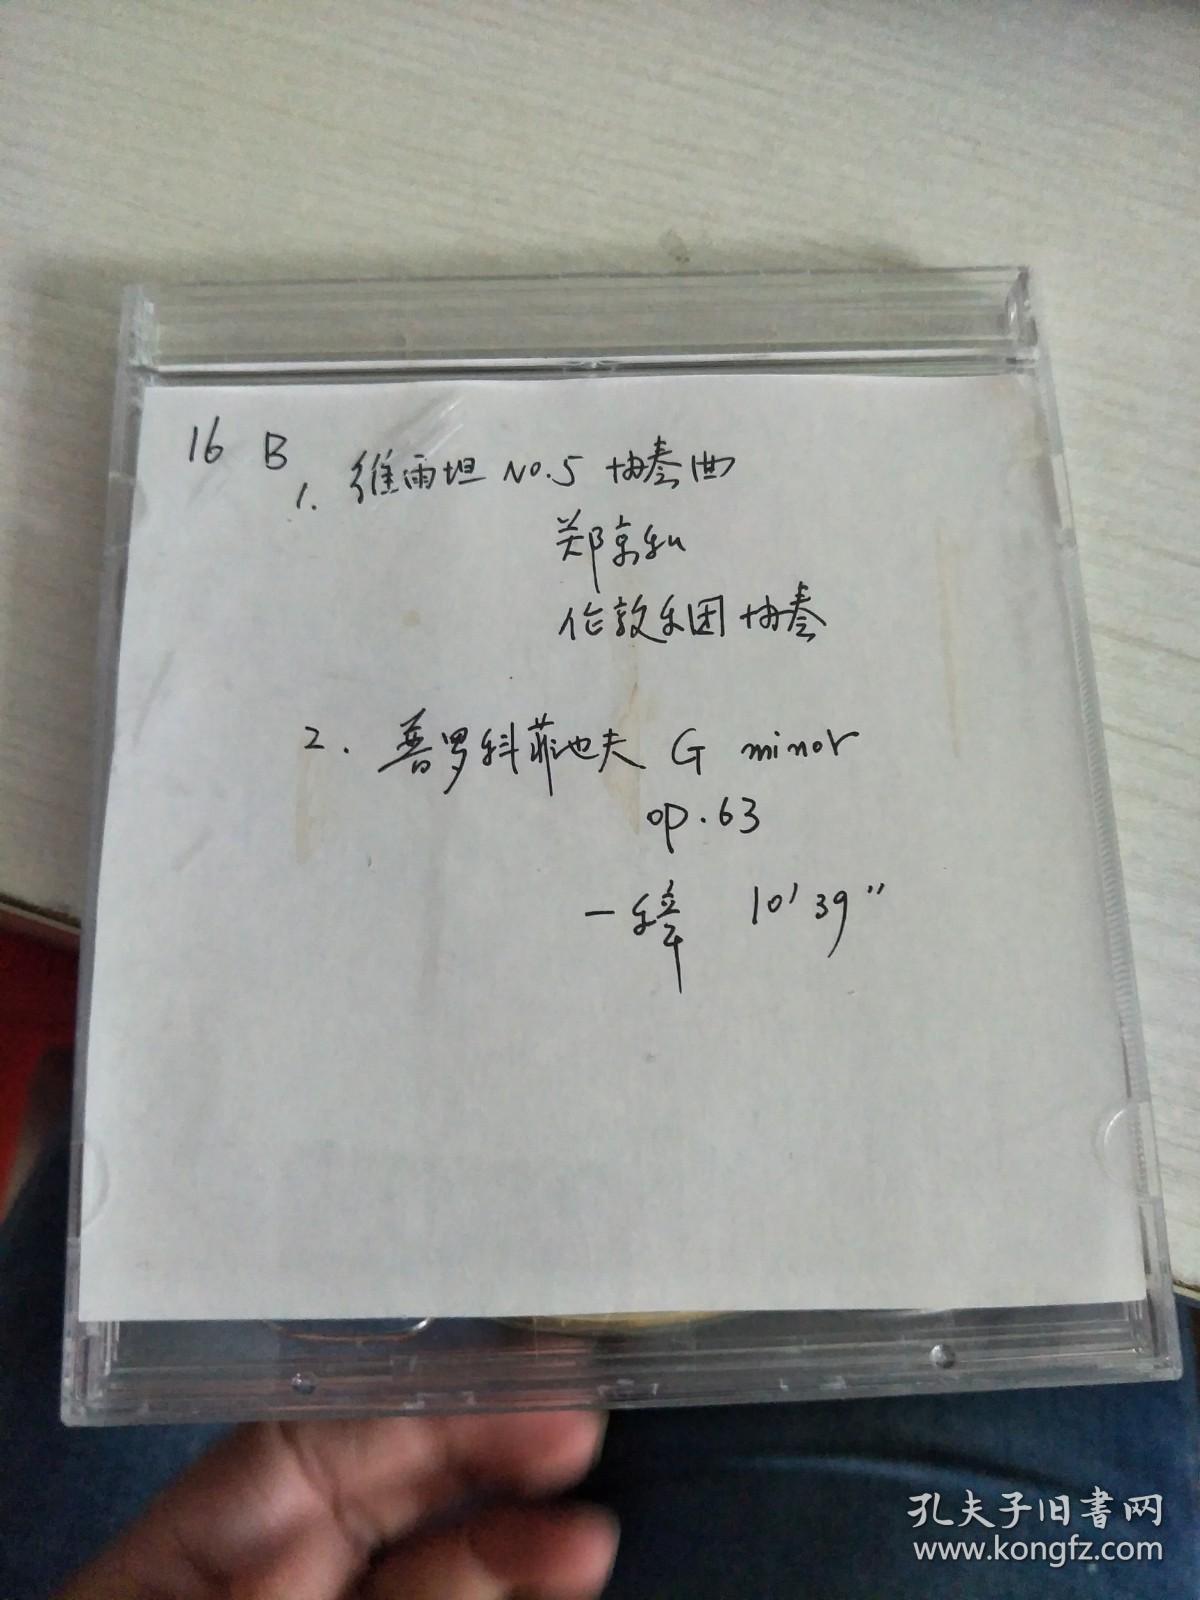 16 B
1. 維雨坦 No.5 协奏曲
郑京和
伦敦乐团 协奏
2. 普罗科菲也夫 G minor
op.63
一 10'39"
孔夫子旧書网
www.kongfz.com